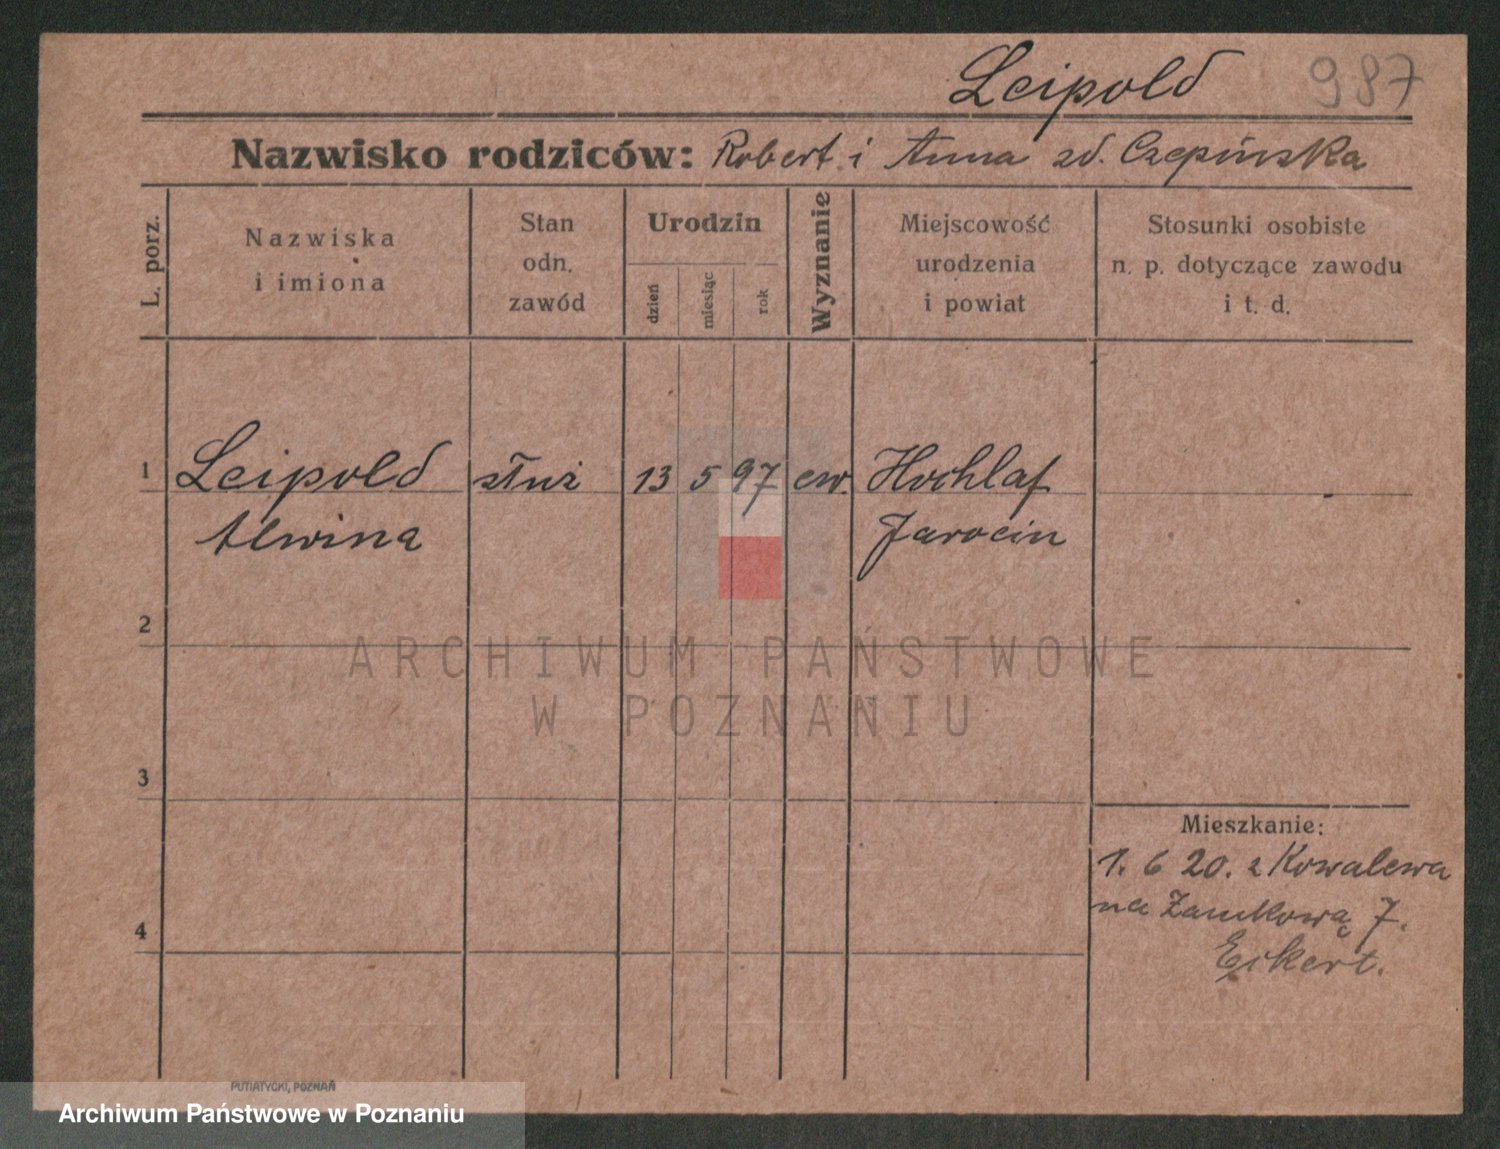 Leipold 987
Nazwisko rodziców: Robert i Anna zd. Czepińska
L. porz.
Nazwiska
i imiona
Stan
odn.
zawód
Urodzin
dzień
miesiąc
rok
Wyznanie
Miejscowość
urodzenia
i powiat
Stosunki osobiste
n. p. dotyczące zawodu
i t. d.
1 Leipold służ 13 5 97 ew. Hochlaf
Alwina Jarocin
2
ARCHIWUM PAŃSTWOWE
W POZNANIU
3
Mieszkanie:
1. 6 20. z Kowalewa
na Zamkową 7.
4
Eikert.
PUTIATYCKI, POZNAŃ
Archiwum Państwowe w Poznaniu